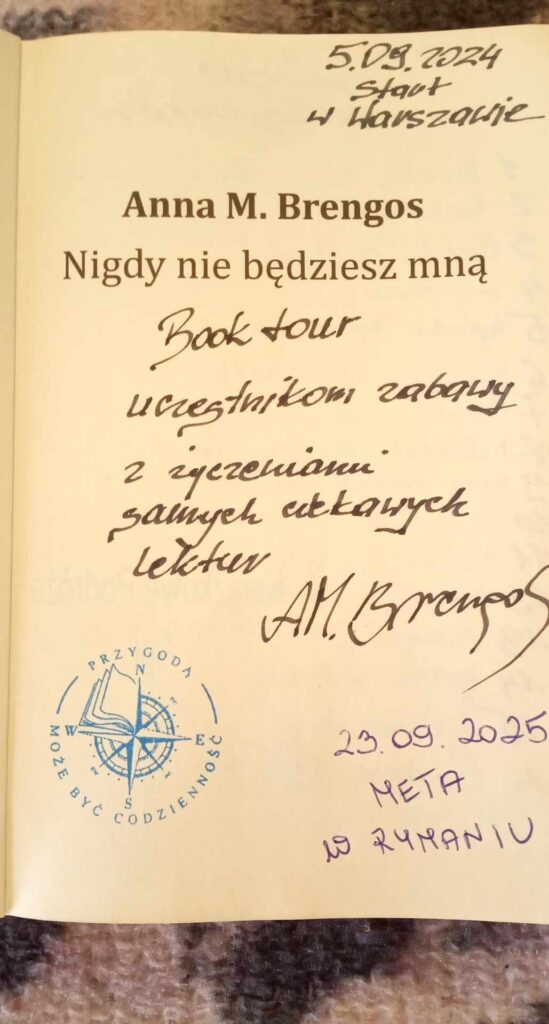 5.09.2024
start
w Warszawie
Anna M. Brengos
Nigdy nie będziesz mną
Book tour
uczestnikom zabawy
z życzeniami
samych ciekawych
lektur
AM. Brengos
PRZYGODA
MOŻE BYĆ CODZIENNOŚĆ
N
W
E
S
23.09.2025
META
w RYMANIU